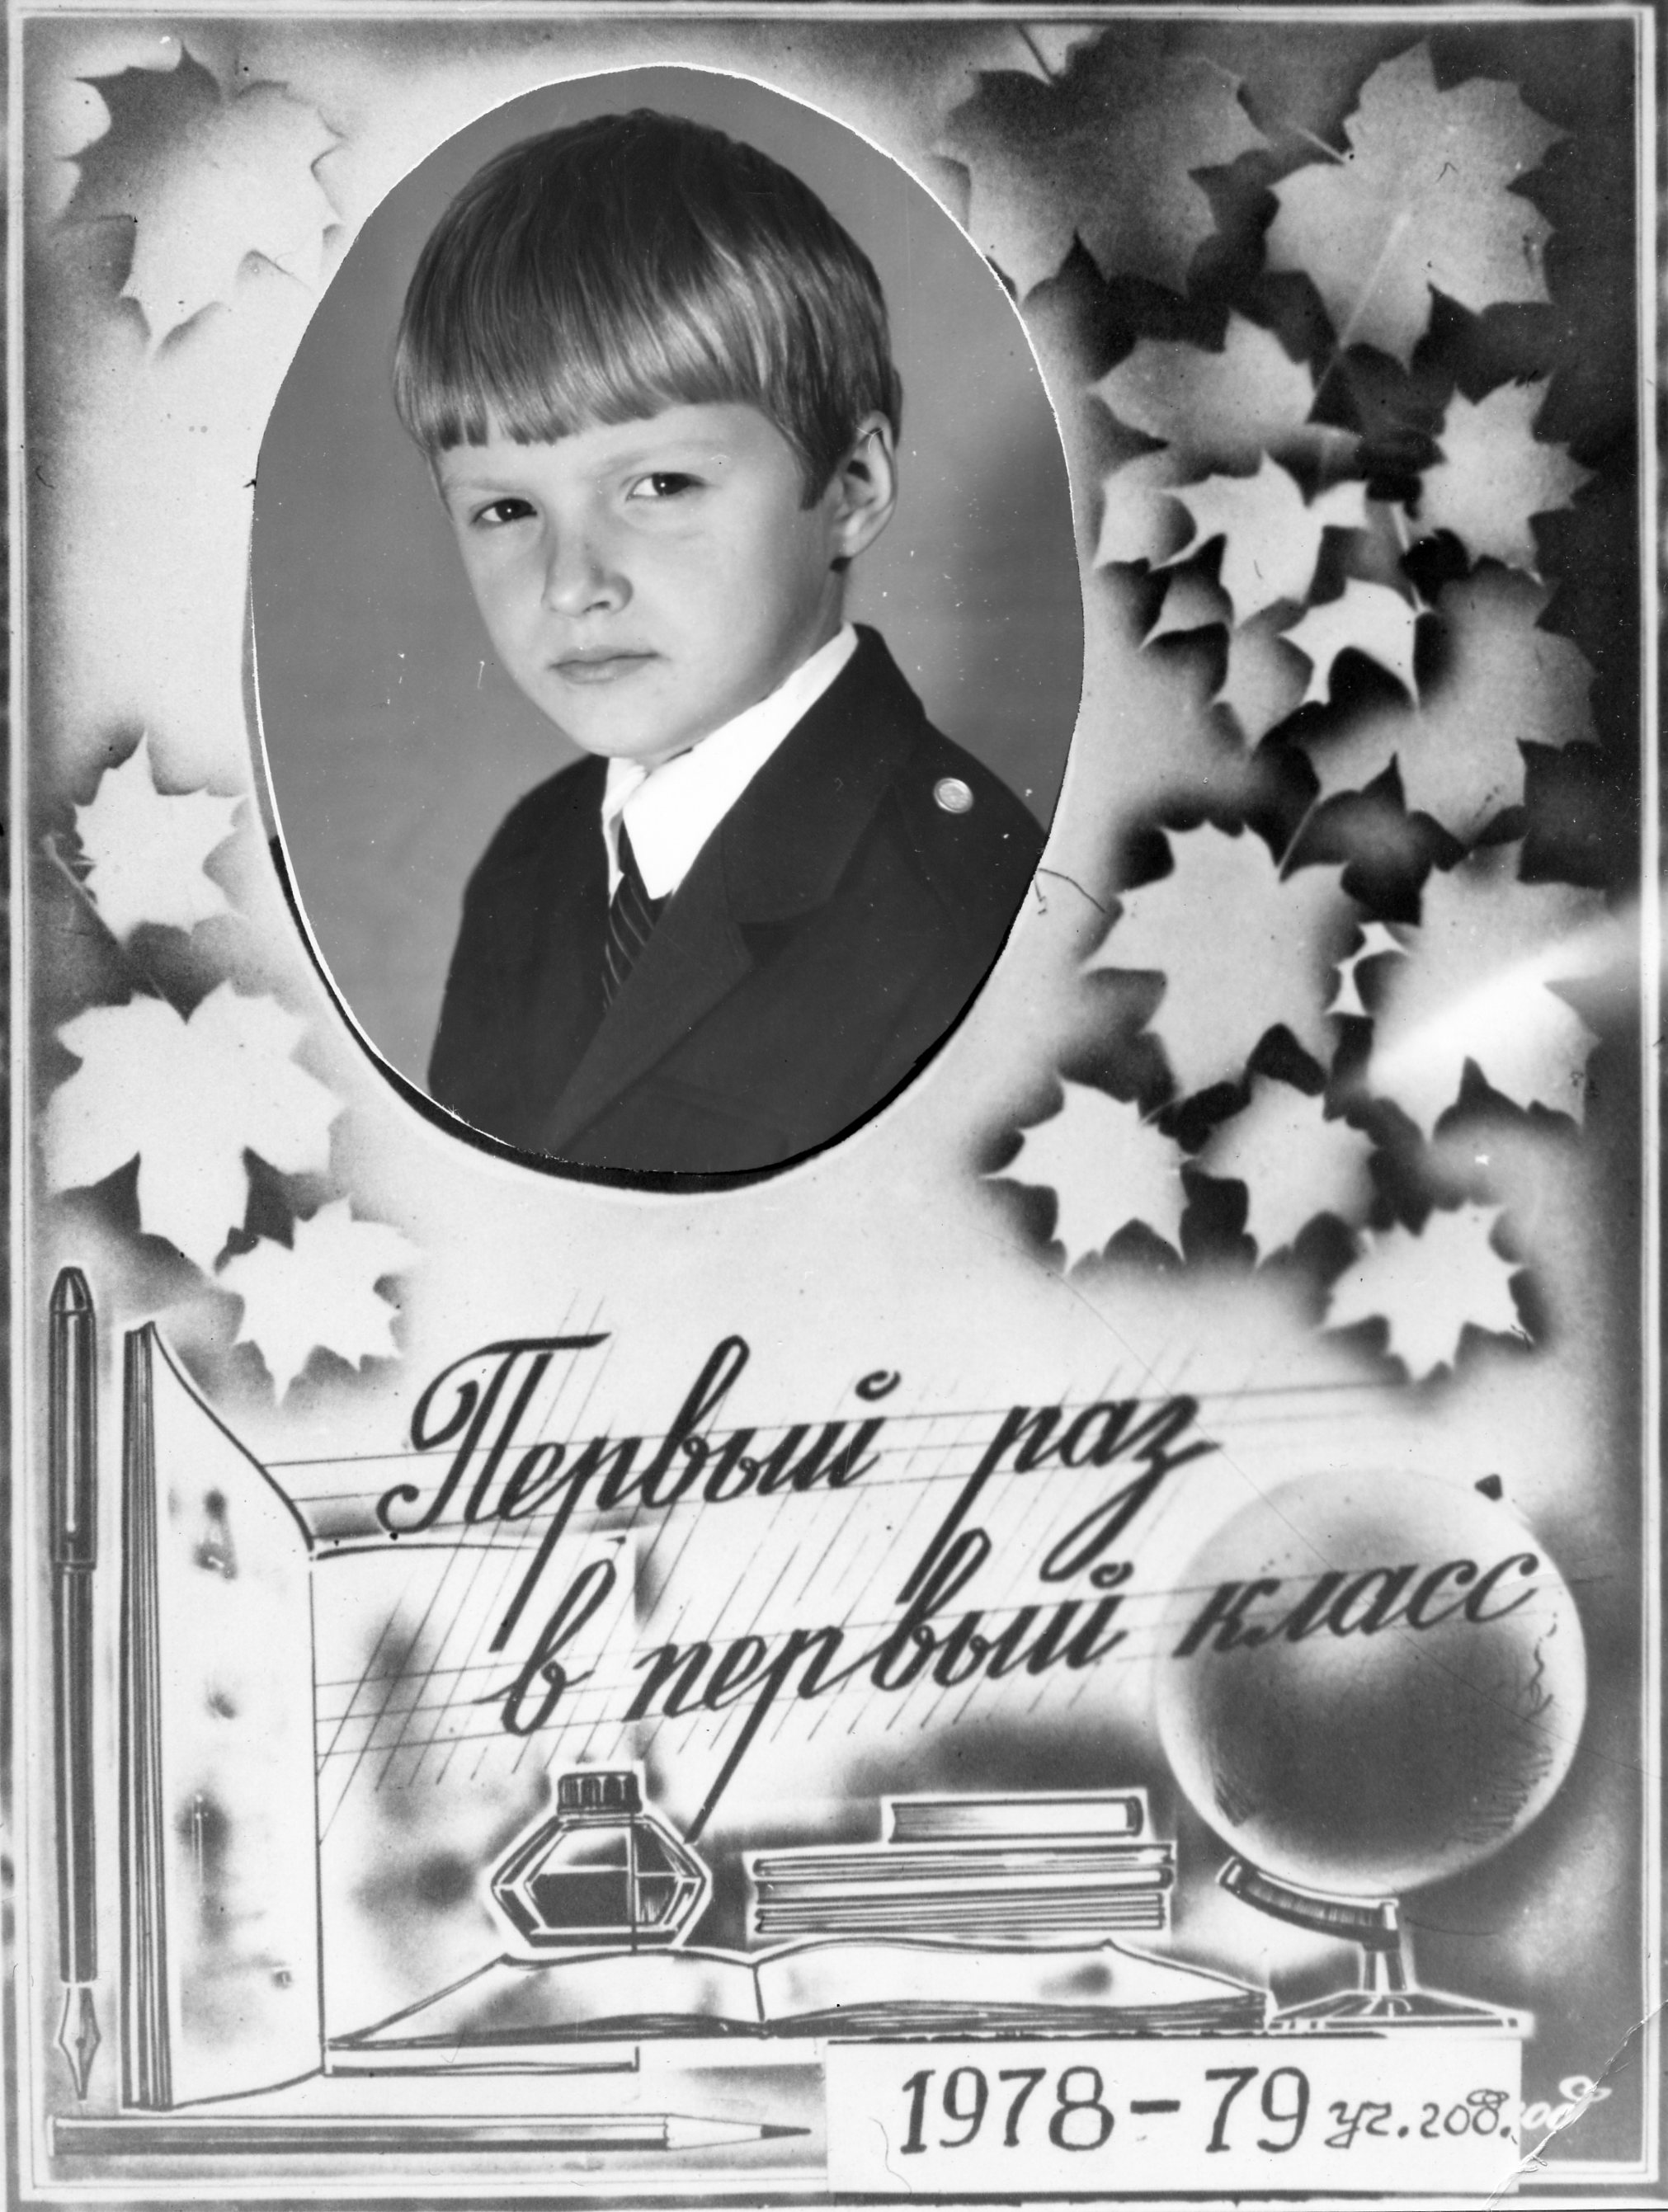 Первый раз
в первый класс
1978-79 уч. год.